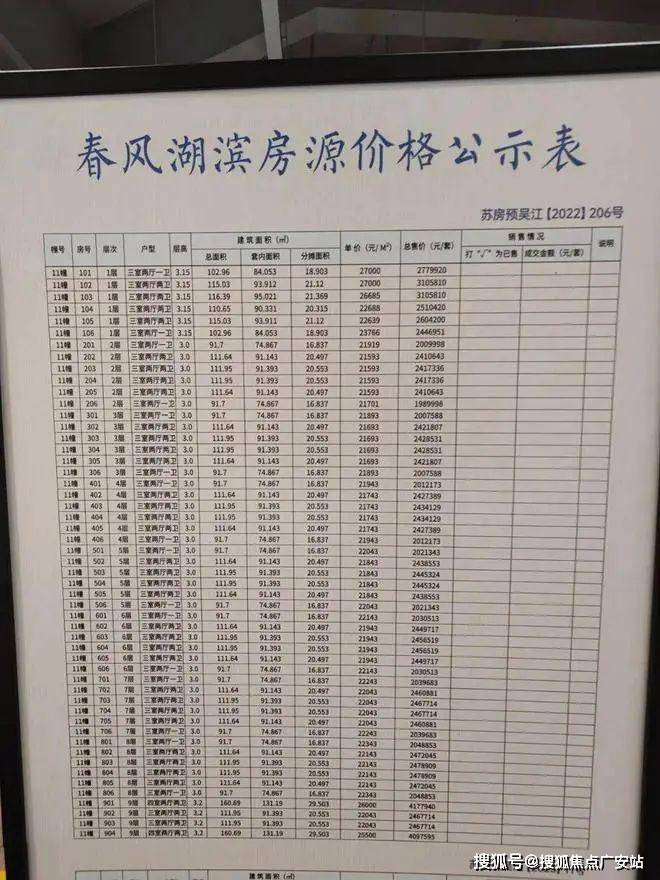 春风湖滨房源价格公示表
苏房预吴江【2022】206号
幢号 房号 层次 户型 层高 建筑面积（㎡） 单价（元/M²） 总售价（元/套） 销售情况 说明
总面积 套内面积 分摊面积 打“√”为已售 成交金额（元/套）
11幢 101 1层 三室两厅一卫 3.15 102.96 84.053 18.903 27000 2779920
11幢 102 1层 三室两厅两卫 3.15 115.03 93.912 21.12 27000 3105810
11幢 103 1层 三室两厅两卫 3.15 116.39 95.021 21.369 26685 3105810
11幢 104 1层 三室两厅两卫 3.15 110.65 90.331 20.315 22688 2510420
11幢 105 1层 三室两厅两卫 3.15 115.03 93.911 21.12 22639 2604200
11幢 106 1层 三室两厅一卫 3.15 102.96 84.053 18.903 23766 2446951
11幢 201 2层 三室两厅一卫 3.0 91.7 74.867 16.837 21919 2009998
11幢 202 2层 三室两厅两卫 3.0 111.64 91.143 20.497 21593 2410643
11幢 203 2层 三室两厅两卫 3.0 111.95 91.393 20.553 21593 2417336
11幢 204 2层 三室两厅两卫 3.0 111.95 91.393 20.553 21593 2417336
11幢 205 2层 三室两厅两卫 3.0 111.64 91.143 20.497 21593 2410643
11幢 206 2层 三室两厅一卫 3.0 91.7 74.867 16.837 21701 1989998
11幢 301 3层 三室两厅一卫 3.0 91.7 74.867 16.837 21893 2007588
11幢 302 3层 三室两厅两卫 3.0 111.64 91.143 20.497 21693 2421807
11幢 303 3层 三室两厅两卫 3.0 111.95 91.393 20.553 21693 2428531
11幢 304 3层 三室两厅两卫 3.0 111.95 91.393 20.553 21693 2428531
11幢 305 3层 三室两厅两卫 3.0 111.64 91.143 20.497 21693 2421807
11幢 306 3层 三室两厅一卫 3.0 91.7 74.867 16.837 21893 2007588
11幢 401 4层 三室两厅一卫 3.0 91.7 74.867 16.837 21943 2012173
11幢 402 4层 三室两厅两卫 3.0 111.64 91.143 20.497 21743 2427389
11幢 403 4层 三室两厅两卫 3.0 111.95 91.393 20.553 21743 2434129
11幢 404 4层 三室两厅两卫 3.0 111.95 91.393 20.553 21743 2434129
11幢 405 4层 三室两厅两卫 3.0 111.64 91.143 20.497 21743 2427389
11幢 406 4层 三室两厅一卫 3.0 91.7 74.867 16.837 21943 2012173
11幢 501 5层 三室两厅一卫 3.0 91.7 74.867 16.837 22043 2021343
11幢 502 5层 三室两厅两卫 3.0 111.64 91.143 20.497 21843 2438553
11幢 503 5层 三室两厅两卫 3.0 111.95 91.393 20.553 21843 2445324
11幢 504 5层 三室两厅两卫 3.0 111.95 91.393 20.553 21843 2445324
11幢 505 5层 三室两厅两卫 3.0 111.64 91.143 20.497 21843 2438553
11幢 506 5层 三室两厅一卫 3.0 91.7 74.867 16.837 22043 2021343
11幢 601 6层 三室两厅一卫 3.0 91.7 74.867 16.837 22143 2030513
11幢 602 6层 三室两厅两卫 3.0 111.64 91.143 20.497 21943 2449717
11幢 603 6层 三室两厅两卫 3.0 111.95 91.393 20.553 21943 2456519
11幢 604 6层 三室两厅两卫 3.0 111.95 91.393 20.553 21943 2456519
11幢 605 6层 三室两厅两卫 3.0 111.64 91.143 20.497 21943 2449717
11幢 606 6层 三室两厅一卫 3.0 91.7 74.867 16.837 22143 2030513
11幢 701 7层 三室两厅一卫 3.0 91.7 74.867 16.837 22243 2039683
11幢 702 7层 三室两厅两卫 3.0 111.64 91.143 20.497 22043 2460881
11幢 703 7层 三室两厅两卫 3.0 111.95 91.393 20.553 22043 2467714
11幢 704 7层 三室两厅两卫 3.0 111.95 91.393 20.553 22043 2467714
11幢 705 7层 三室两厅两卫 3.0 111.64 91.143 20.497 22043 2460881
11幢 706 7层 三室两厅一卫 3.0 91.7 74.867 16.837 22243 2039683
11幢 801 8层 三室两厅一卫 3.0 91.7 74.867 16.837 22343 2048853
11幢 802 8层 三室两厅两卫 3.0 111.64 91.143 20.497 22143 2472045
11幢 803 8层 三室两厅两卫 3.0 111.95 91.393 20.553 22143 2478909
11幢 804 8层 三室两厅两卫 3.0 111.95 91.393 20.553 22143 2478909
11幢 805 8层 三室两厅两卫 3.0 111.64 91.143 20.497 22143 2472045
11幢 806 8层 三室两厅一卫 3.0 91.7 74.867 16.837 22343 2048853
11幢 901 9层 四室两厅两卫 3.2 160.69 131.19 29.503 26000 4177940
11幢 902 9层 三室两厅两卫 3.2 111.95 91.393 20.553 22043 2467714
11幢 903 9层 三室两厅两卫 3.2 111.95 91.393 20.553 22043 2467714
11幢 904 9层 四室两厅两卫 3.2 160.69 131.19 29.503 25500 4097595
建筑面积（㎡）
搜狐号@搜狐焦点广安站